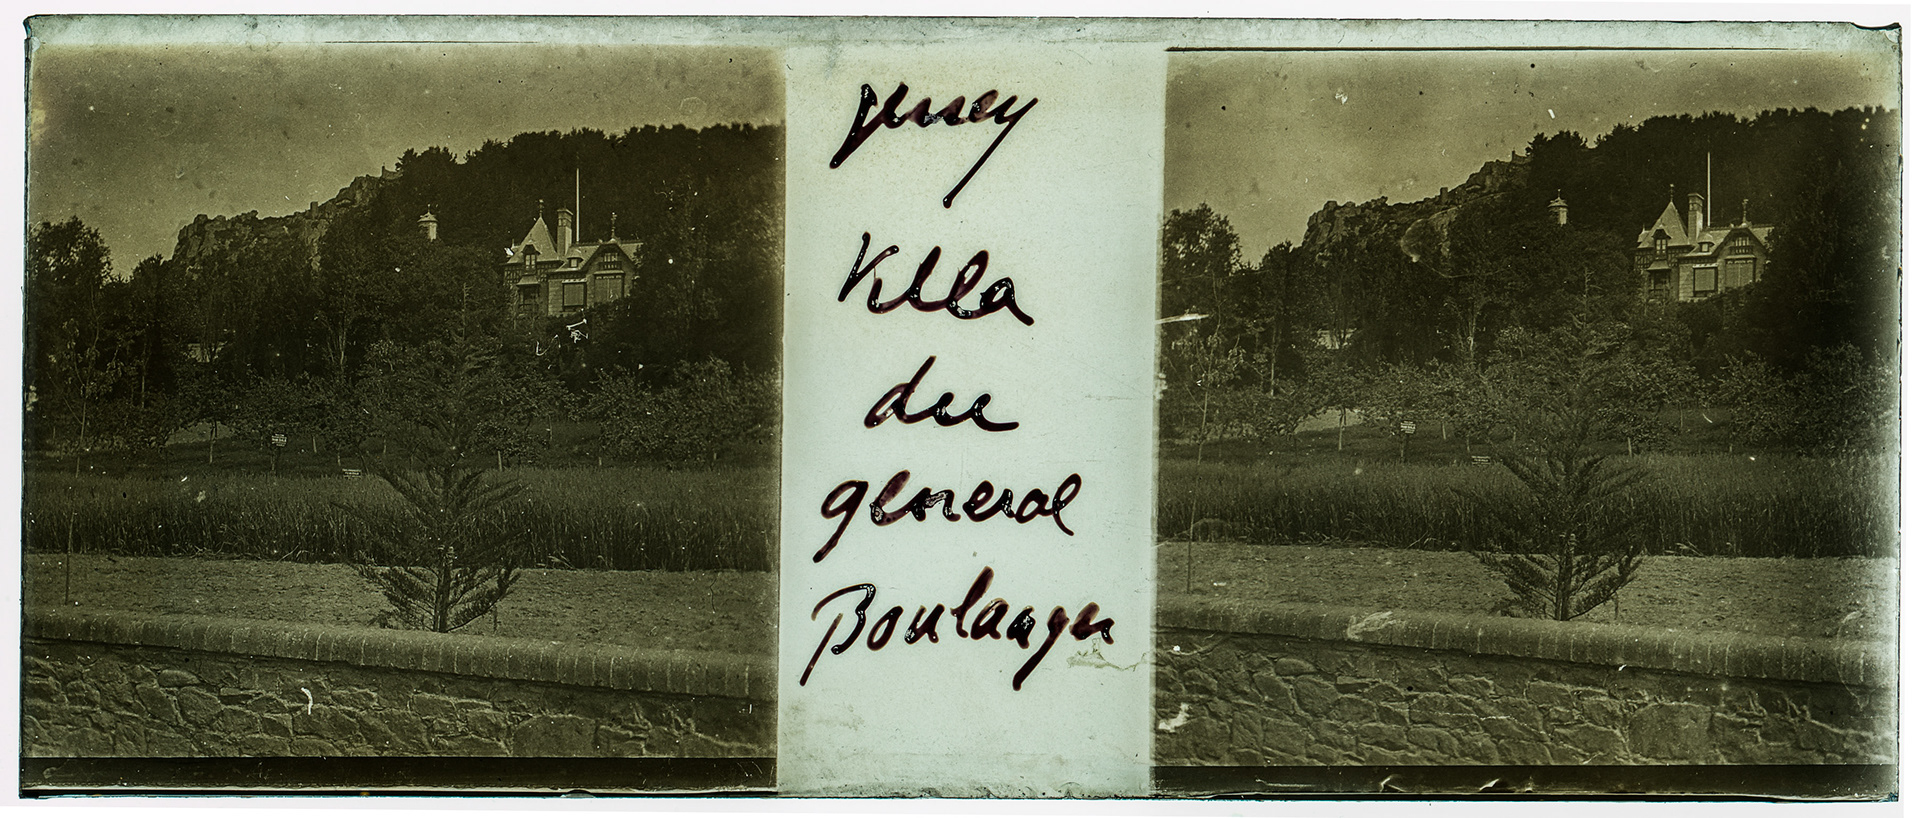 Jersey
Villa
du
general
Boulanger